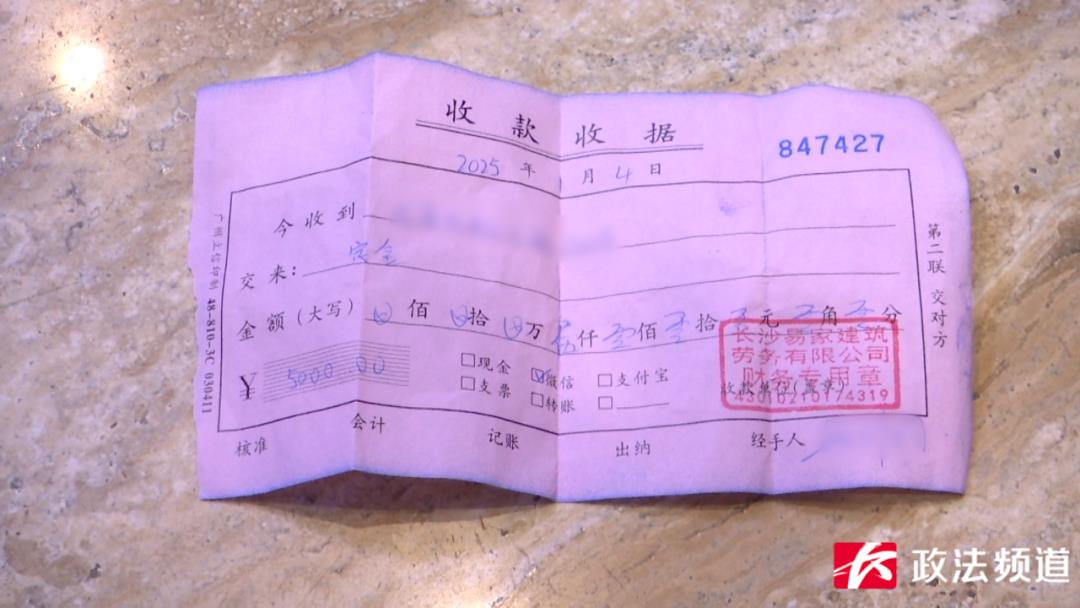 收款收据
847427
2025年1月4日
今收到
交来：定金
金额（大写）⊗佰⊗拾⊗万伍仟零佰零拾零元零角零分
¥ 5000.00
□现金 ☑微信 □支付宝
□支票 □转账 □
收款单位（盖章）
长沙易家建筑
劳务有限公司
财务专用章
43010210174319
核准 会计 记账 出纳 经手人
第二联 交对方
48-810-3C 030411
政法频道